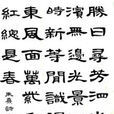 勝日尋芳泗水
濱無邊光景一
時新等閒識得
東風面萬紫千
紅總是春
朱熹詩